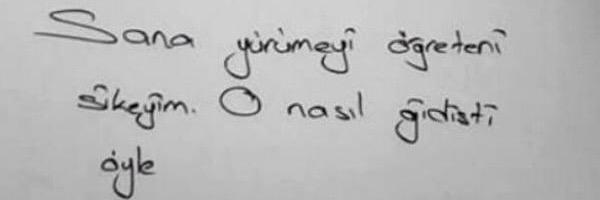 Sana yürümeyi öğreteni
sikeyim. O nasıl gidişti
öyle